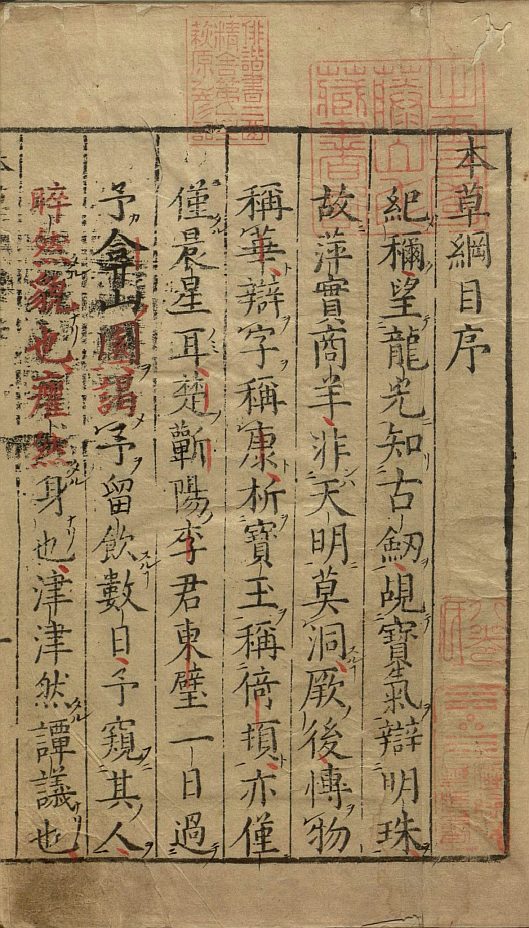 本草綱目序
紀稱望龍光知古劒覘寶氣辯明珠
故萍實商羊非天明莫洞厥後博物
稱華辯字稱康析寶玉稱倚頓亦僅
僅晨星耳楚蘄陽李君東璧一日過
予弇山園謁予留飲數日予窺其人
睟然貌也癯然身也津津然譚議也